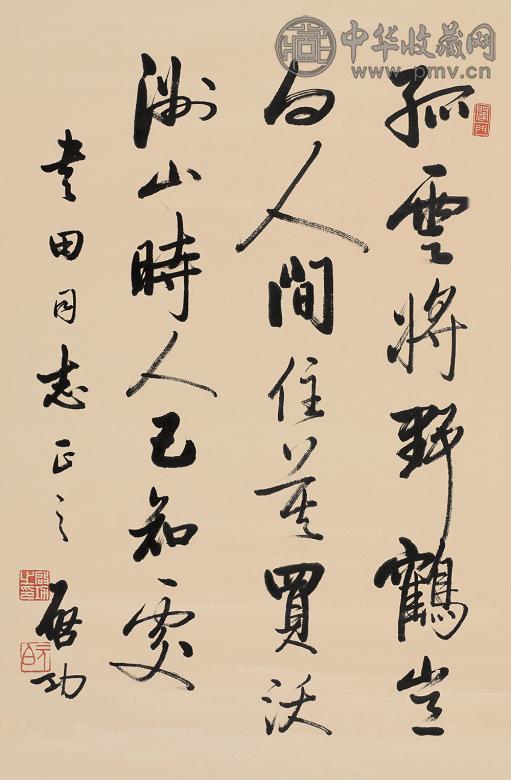 中华收藏网
www.pmv.cn
孤雲將野鶴豈
向人間住莫買沃
洲山時人已知處
田同志正之
启功
元白